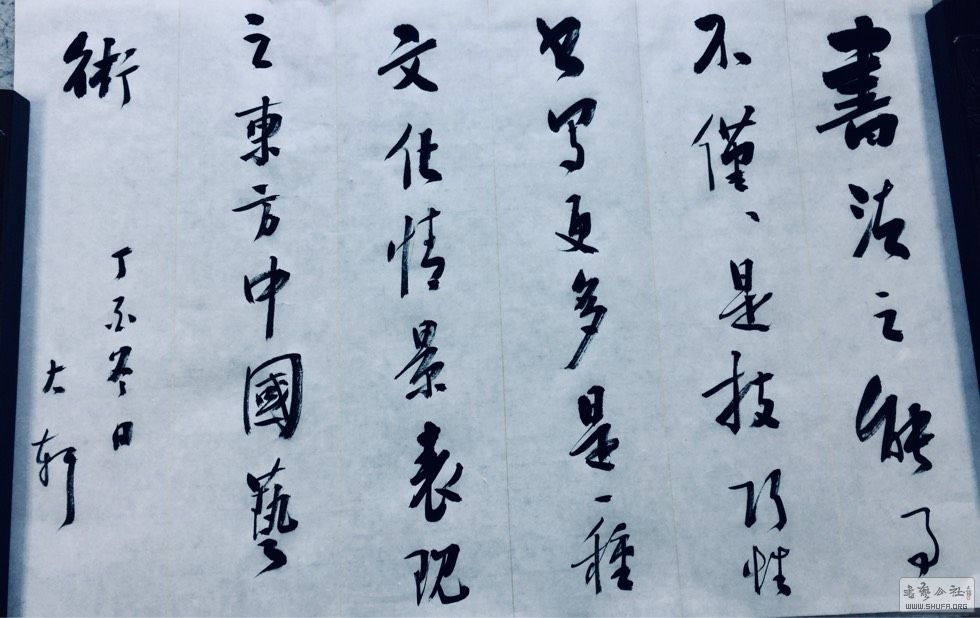 書法之能事
不僅、是技巧性
书写更多是一種
文化情景表現
之東方中國藝
術
丁酉冬日
大軒
書藝公社
WWW.SHUFA.ORG